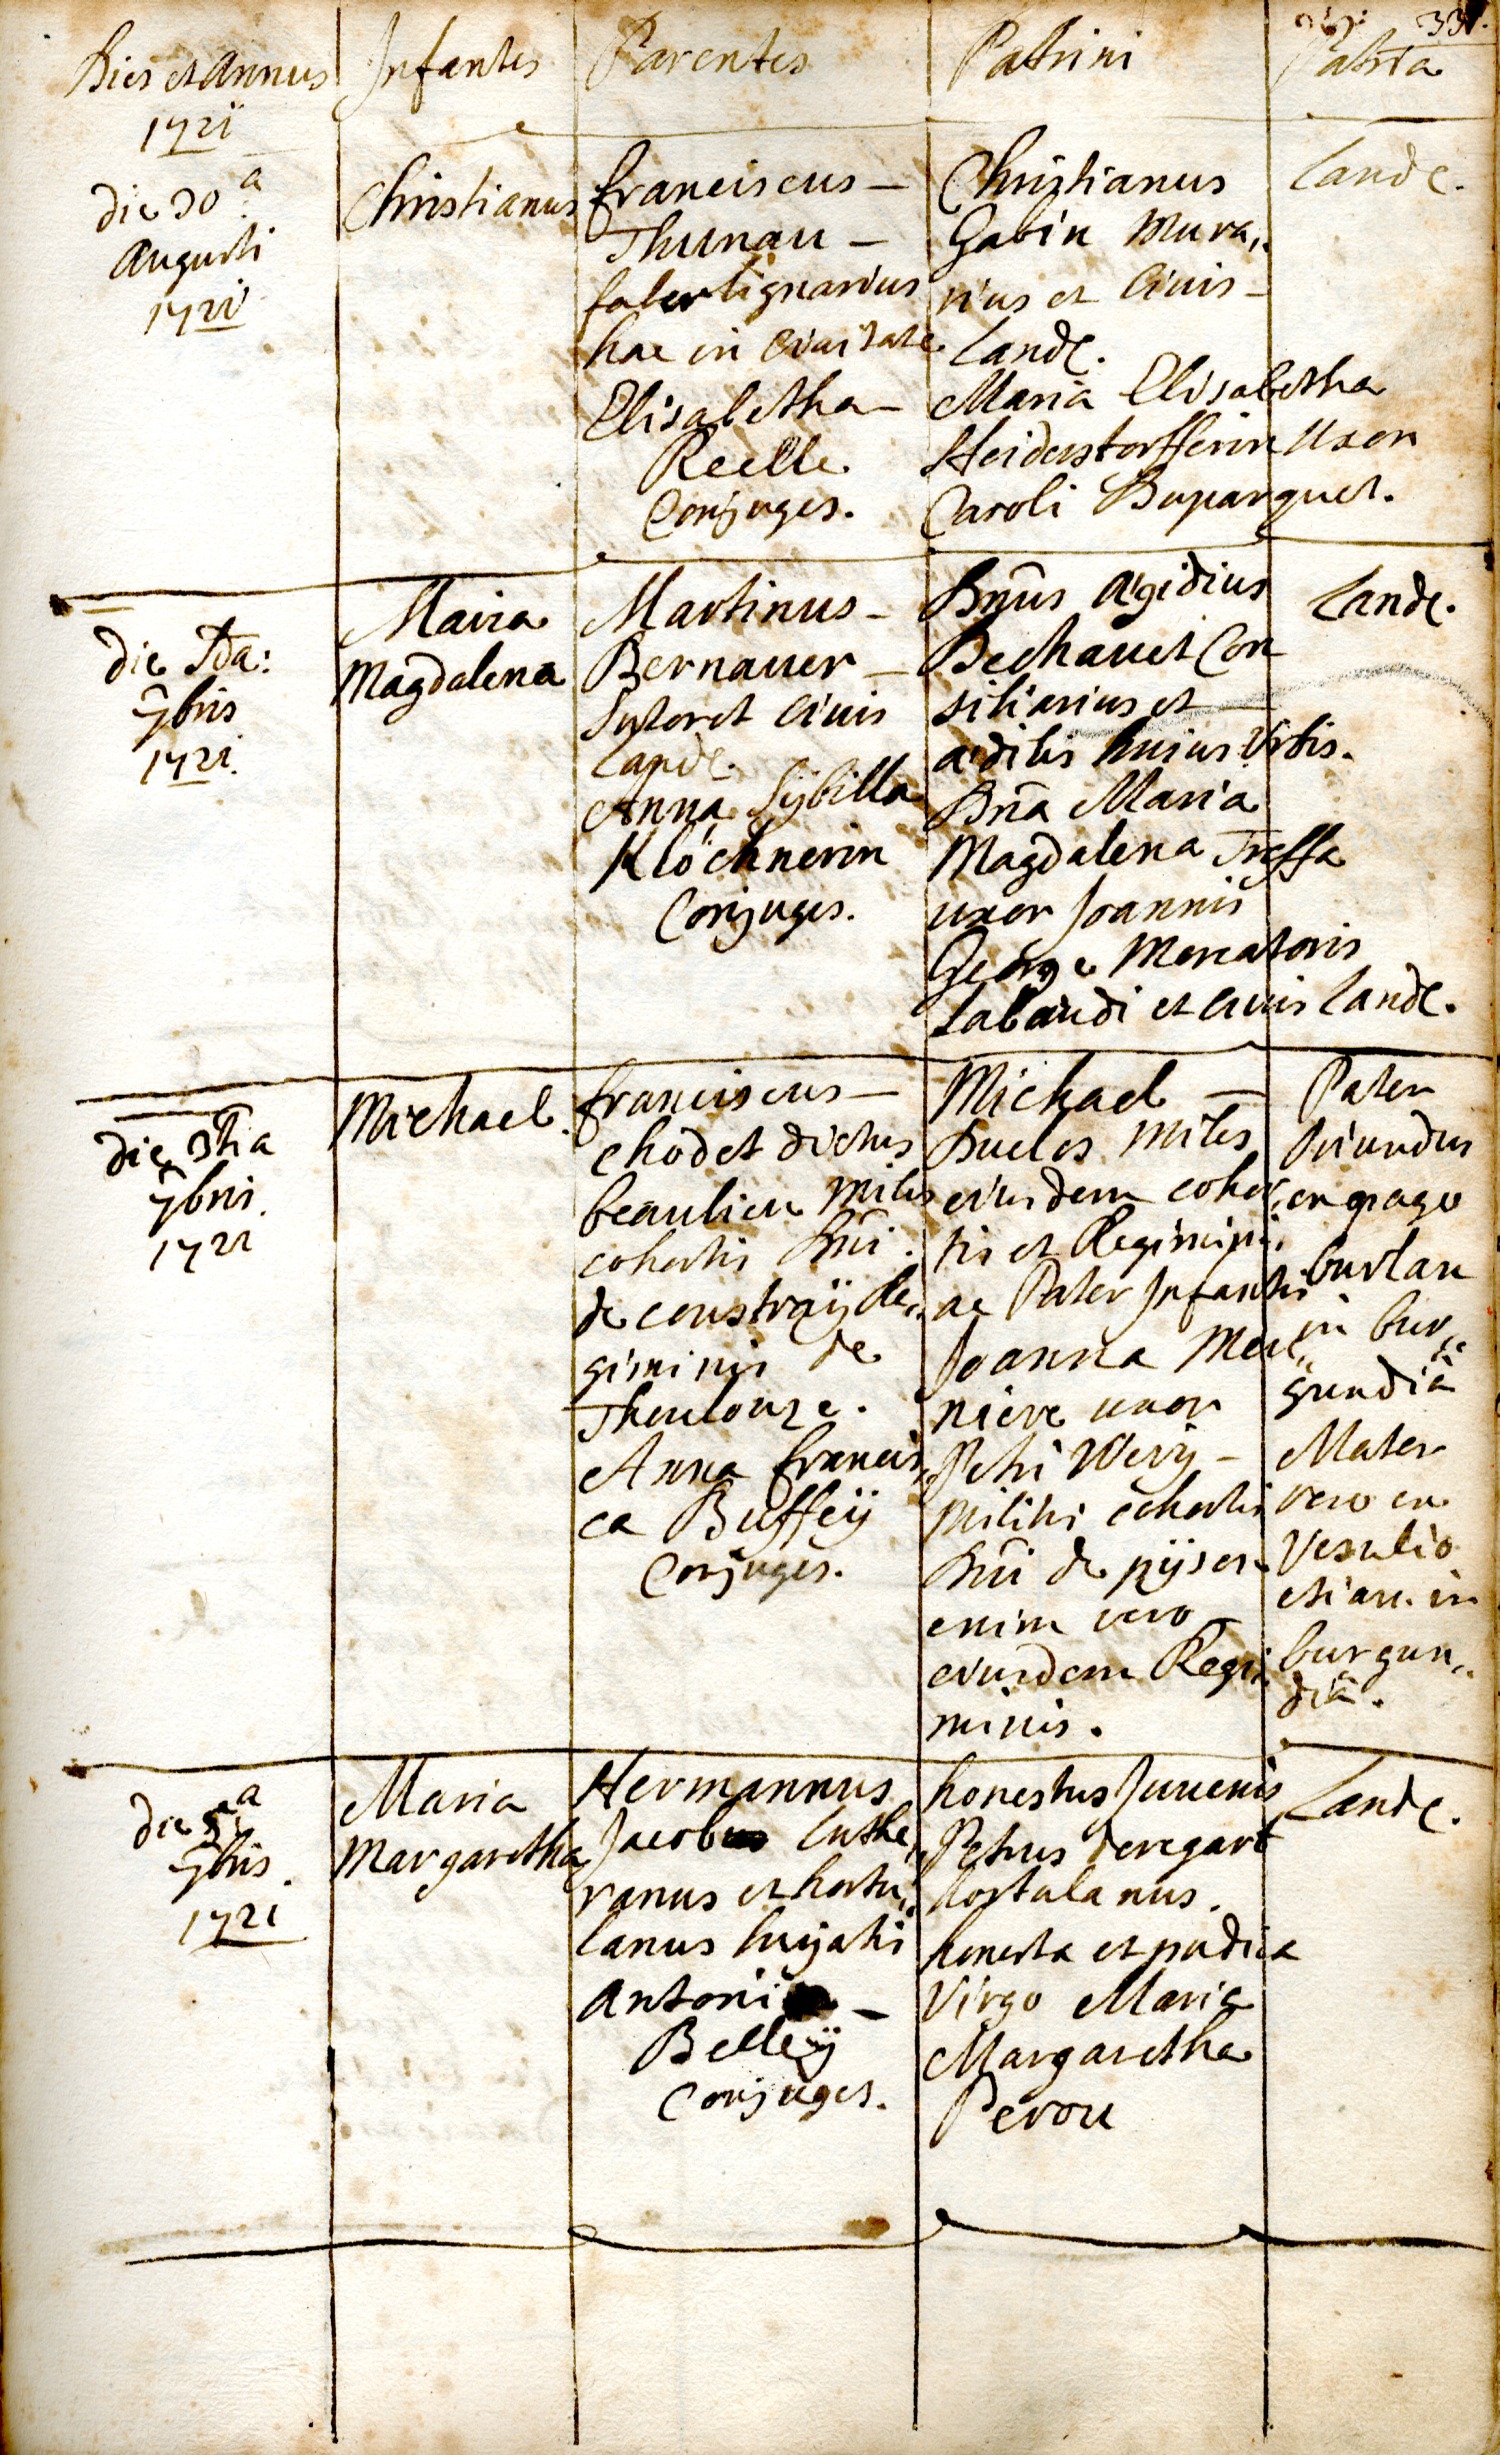 331.
Dies et Annus
1721
Infantes
Parentes
Patrini
Patria
die 30a
Augusti
1721
Christianus
franciscus –
Thurnau –
faber lignarius
hac in Civitate
Elisabetha –
Reelle
Conjuges.
Christianus
Gabin Mura„
rius et Civis –
Land.
Maria Elisabetha
Heiderstorfferin uxor
Caroli Duparquet.
Land.
die 2da:
7bris
1721.
Maria
Magdalena
Martinus –
Bernauer –
Sutor et Civis
Land.
Anna Sybilla
Klöchnerin
Conjuges.
Dnus Ægidius
Dechauet Con
siliarius et
ædilis huius Urbis.
Dna Maria
Magdalena Treffa
uxor Joannis
George Mercatoris
Tabaudi et Civis Land.
Land.
die 3tia
7bris.
1721
Michael.
franciscus –
chodet dictus
beaulieu Miles
cohortis Dni.
de coustray Re„
giminis de
Thoulouze.
Anna francis„
ca Buffeÿ
Conjuges.
Michael –
Duclos Miles
eiusdem cohor„
tis et Regiminis
ac Pater Infantis
Joanna Meu„
niere uxor
Petri Wery –
Militis cohortis
Dni de
enim vero
eiusdem Regi„
minis.
Pater
oriundus
ex pago
burlan
in bur„
gundiâ
Mater
vero ex
Vesulio
etiam in
burgun„
diâ.
die
7bris.
1721
Maria
Margaretha
Hermannus
Jacobus Luthe„
ranus et hortu„
lanus hujatis
Antoni –
Belleÿ
Conjuges.
honestus Juuenis
Petrus deregard
hortulanus.
honesta et pudica
Virgo Maria
Margaretha
Perou
Land.